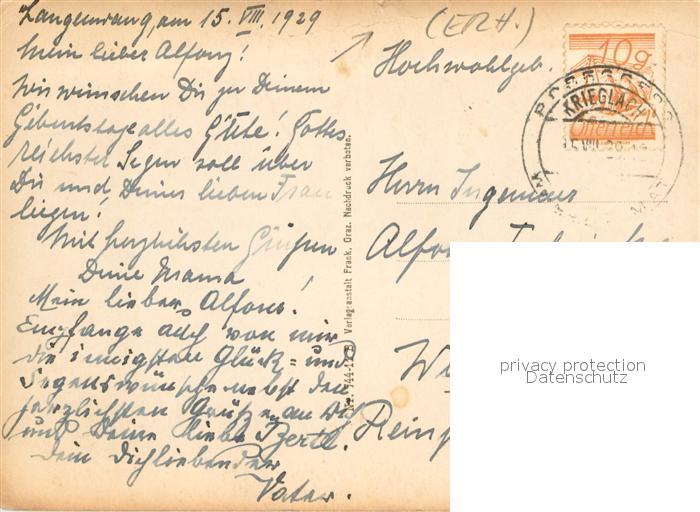 Langenwang, am 15. VIII. 1929
Mein lieber Alfons!
Wir wünschen Dir zu Deinem
Geburtstage alles Gute! Gottes
reichster Segen soll über
Dir und Deiner lieben Frau
liegen!
Mit herzlichsten Grüßen
Deine Mama!
Mein lieber Alfons!
Empfange auch von mir
die innigsten Glück- und
Segenswünsche nebst den
herzlichsten Grüßen an Dich
und Deine liebe Bertl.
Dein Dichliebender
Vater.
Verlagsanstalt Frank, Graz. Nachdruck verboten.
(ERH.)
Hochwohlgeb.
Herrn Ingenieur
Alfons
10g
KRIEGLACH
privacy protection
Datenschutz